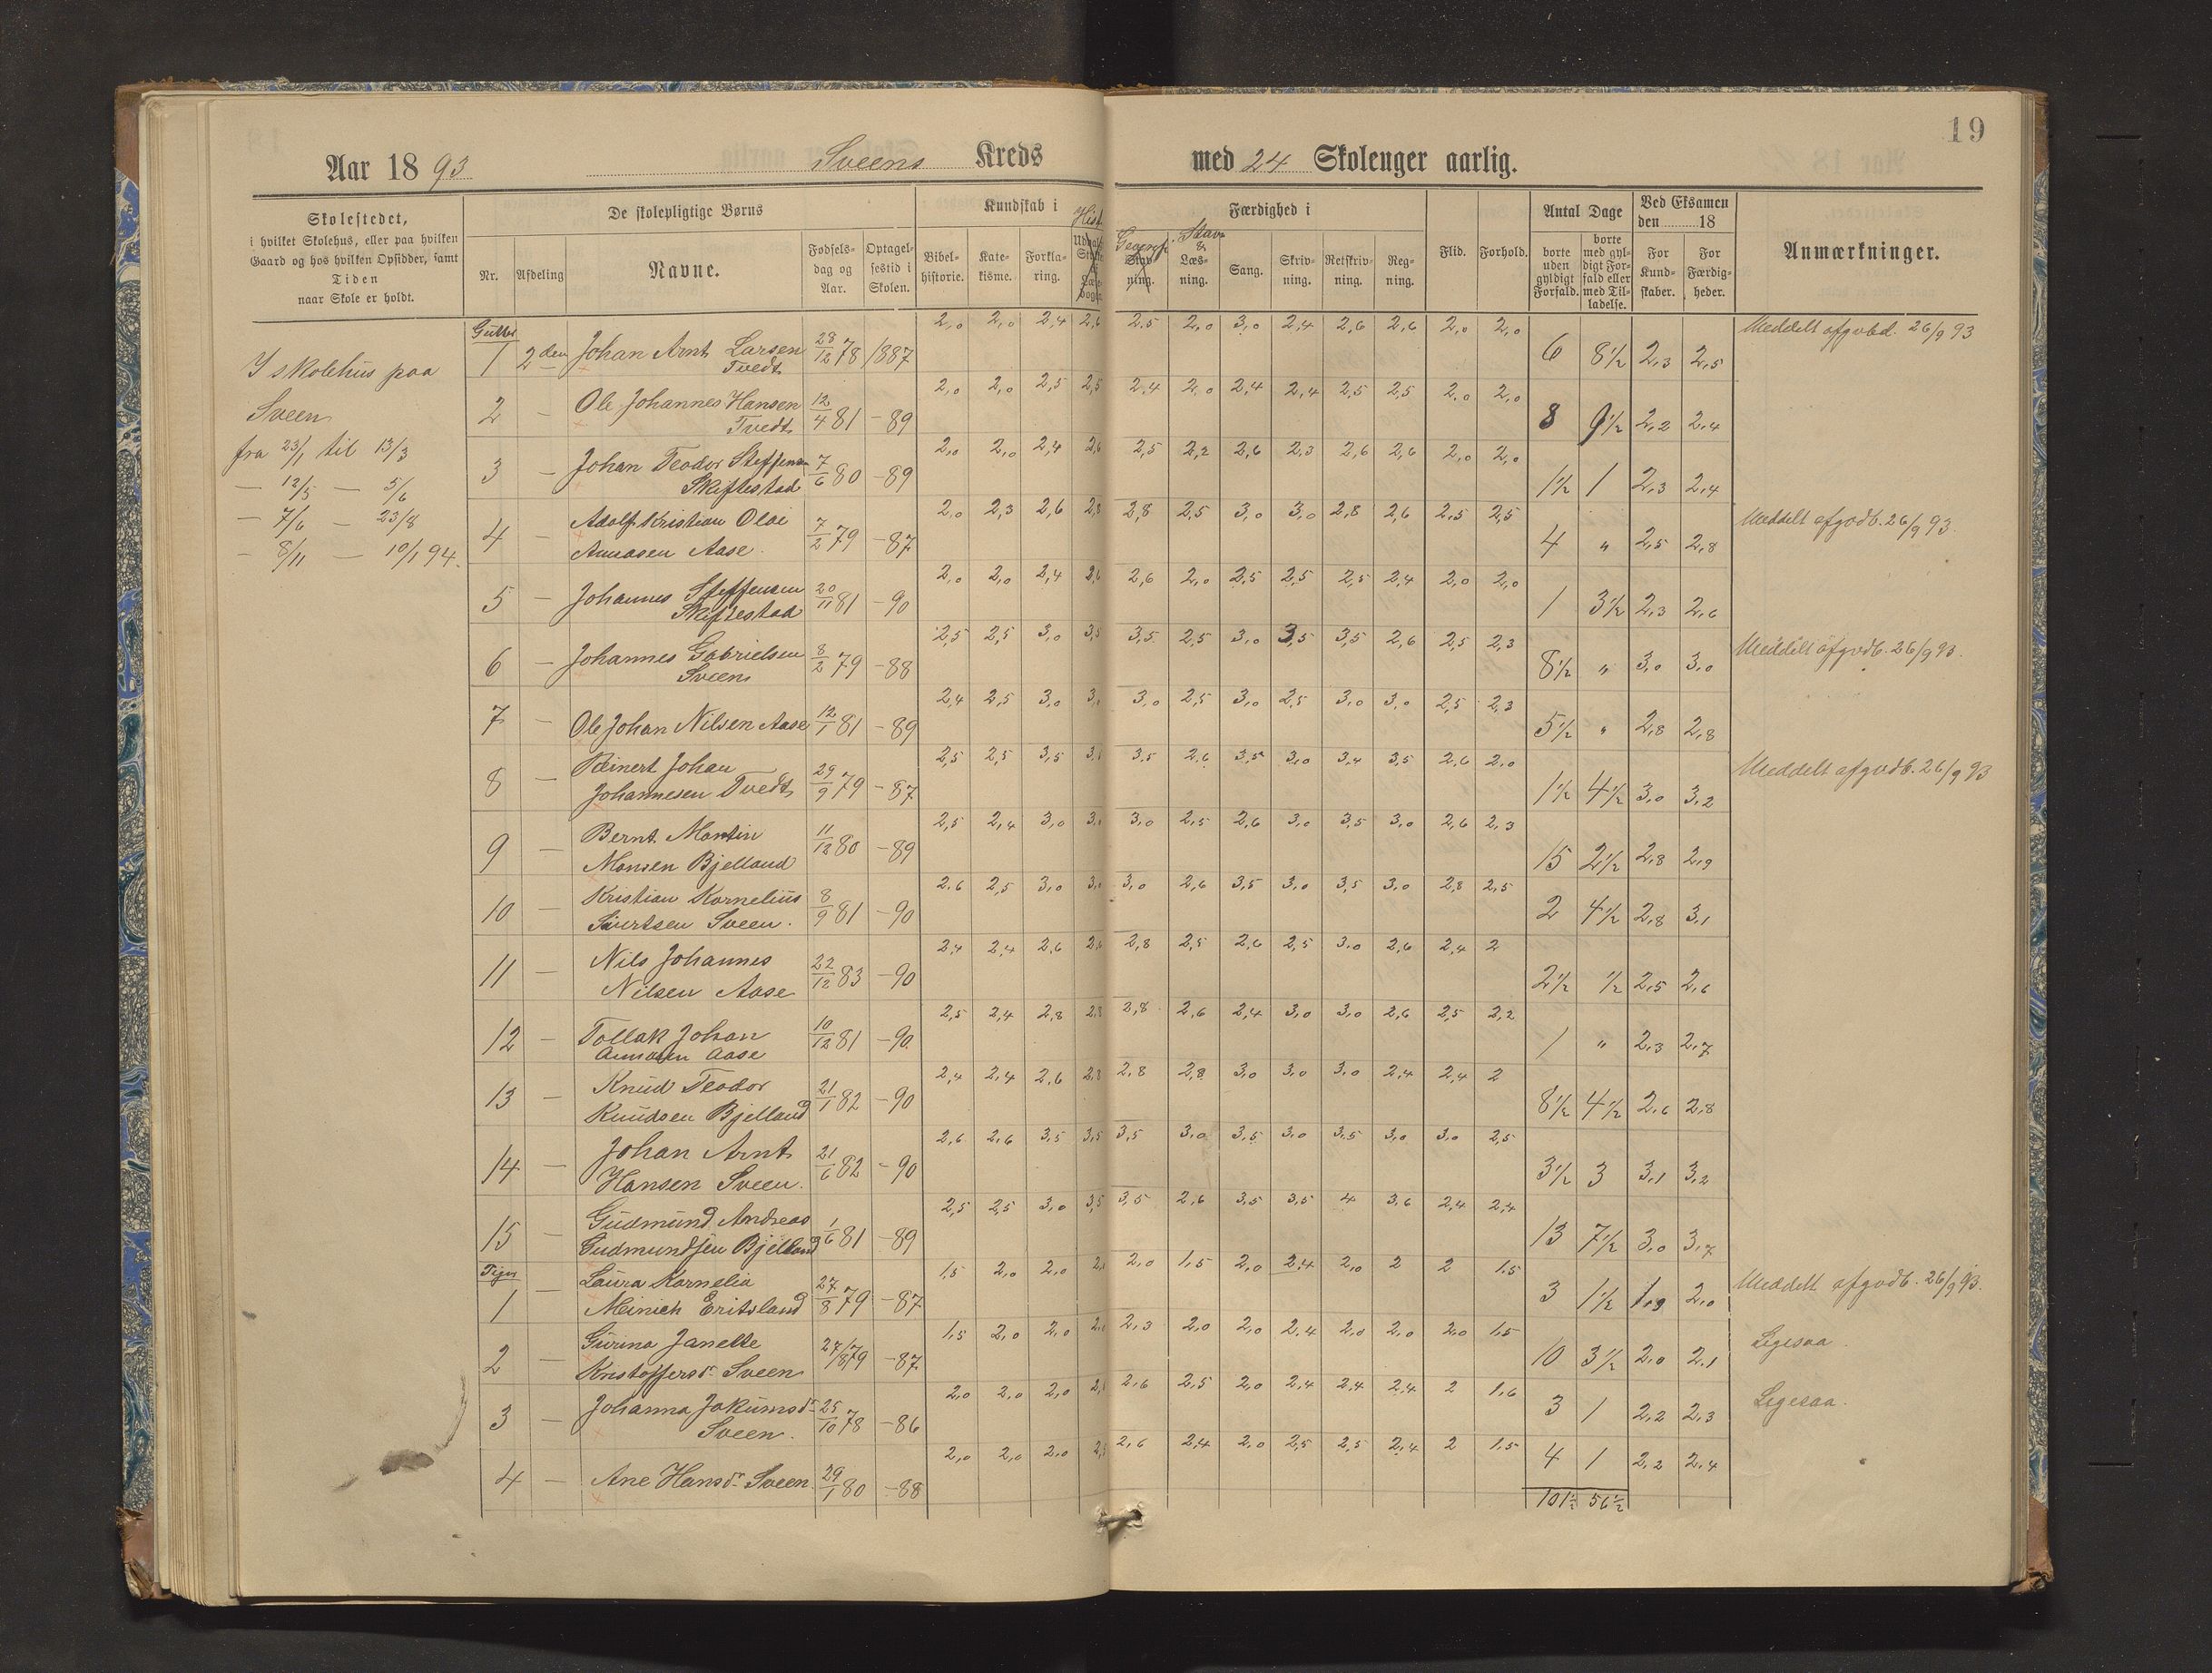 19
Aar 1893 Sveens Kreds med 24 Skoleuger aarlig.
Skolestedet,
i hvilket Skolehus, eller paa hvilken
Gaard og hos hvilken Opsidder, samt
Tiden
naar Skole er holdt.
De skolepligtige Børns
Nr. Afdeling Navne. Fødselsdag og Aar. Optagelsestid i Skolen.
Kundskab i
Bibelhistorie. Katekisme. Forklaring. Hist.
Færdighed i
Geografi Stavn. & Læsning. Sang. Skrivning. Retskrivning. Regning.
Flid. Forhold.
Antal Dage
borte uden gyldigt Forfald. borte med gyldigt Forfald eller med Tilladelse.
Ved Eksamen den 18
For Kundskaber. For Færdigheder.
Anmærkninger.
I skolehus paa
Sveen
fra 23/1 til 13/3
— 12/5 — 5/6
— 7/6 — 23/8
— 8/11 — 10/1 94.
Gutter
1 2den Johan Arnt Larsen Tvedt 28/12 78 1887 2,0 2,0 2,4 2,6 2,5 2,0 3,0 2,4 2,6 2,6 2,0 2,0 6 8½ 2,3 2,5 Meddelt afgvbd. 26/9 93
2 — Ole Johannes Hansen Tvedt 12/4 81 —89 2,0 2,0 2,5 2,5 2,4 2,0 2,4 2,4 2,5 2,5 2,0 2,0 8 9½ 2,2 2,4
3 — Johan Teodor Steffensen Skiftestad 7/6 80 —89 2,0 2,0 2,4 2,6 2,5 2,2 2,6 2,3 2,6 2,6 2,0 2,0 1½ 1 2,3 2,4
4 — Adolf Kristian Olai Aanasen Aase. 7/2 79 —87 2,0 2,3 2,6 2,8 2,8 2,5 3,0 3,0 2,8 2,6 2,5 2,5 4 " 2,5 2,8 Meddelt afgvdb. 26/9 93
5 — Johannes Steffensen Skiftestad 20/11 81 —90 2,0 2,0 2,4 2,6 2,6 2,0 2,5 2,5 2,5 2,4 2,0 2,0 1 3½ 2,3 2,6
6 — Johannes Gabrielsen Sveen 8/2 79 —88 2,5 2,5 3,0 3,5 3,5 2,5 3,0 3,5 3,5 2,6 2,5 2,3 8½ " 3,0 3,0 Meddelt afgvdb. 26/9 93.
7 — Ole Johan Nilsen Aase 12/1 81 —89 2,4 2,5 3,0 3,0 2,5 3,0 2,5 3,0 3,0 2,5 2,3 5½ " 2,8 2,8
8 — Reinert Johan Johannesen Tvedt 29/9 79 —87 2,5 2,5 3,5 3,5 2,6 3,5 3,0 3,4 3,5 2,6 2,0 1½ 4½ 3,0 3,2 Meddelt afgvdb. 26/9 93
9 — Bernt Martin Monsen Bjelland 11/12 80 —89 2,5 2,4 3,0 3,0 2,5 2,6 3,0 3,5 3,0 2,6 2,3 15 2½ 2,8 2,9
10 — Kristian Kornelius Sivertsen Sveen. 8/9 81 —90 2,6 2,5 3,0 3,0 3,0 2,6 3,5 3,0 3,5 3,0 2,8 2,5 2 4½ 2,8 3,1
11 — Nils Johannes Nilsen Aase 22/12 83 —90 2,4 2,4 2,6 2,8 2,5 2,6 2,5 3,0 2,6 2,4 2 2½ ½ 2,5 2,6
12 — Tollak Johan Aanasen Aase 10/12 81 —90 2,5 2,4 2,8 2,8 2,8 2,6 2,4 3,0 3,0 2,6 2,5 2,2 1 " 2,3 2,7
13 — Knud Teodor Knudsen Bjelland 21/1 82 —90 2,4 2,4 2,6 2,8 2,8 2,8 3,0 3,0 3,0 2,4 2,4 2 8½ 4½ 2,6 2,8
14 — Johan Arnt Hansen Sveen. 21/6 82 —90 2,6 2,6 3,5 3,5 3,5 3,0 3,5 3,0 3,5 3,0 3,0 2,5 3½ 3 3,1 3,2
15 — Gudmund Andreas Gudmundsen Bjelland 1/6 81 —89 2,5 2,5 3,0 3,5 3,5 2,6 3,5 3,5 4 3,6 2,4 2,4 13 7½ 3,0 3,7
Piger
1 Laura Kornelia Meinich Eritsland 27/8 79 —87 1,5 2,0 2,0 2,0 1,5 2,0 2,4 2,0 2 2 1,5 3 1½ 1,9 2,0 Meddelt afgvdb. 26/9 93.
2 — Gurina Janette Kristoffersdr. Sveen 27/8 79 —87 1,5 2,0 2,0 2,3 2,0 2,0 2,4 2,0 2,0 2,0 1,5 10 3½ 2,0 2,1 Ligesaa.
3 — Johanna Jakumsdr. Sveen. 25/10 78 —86 2,0 2,0 2,0 2,6 2,5 2,0 2,4 2,4 2,4 2 1,6 3 1 2,2 2,3 Ligesaa.
4 — Ane Hansdr. Sveen 29/1 80 —88 2,0 2,0 2,0 2,5 2,6 2,4 2,0 2,5 2,5 2,4 2 1,5 4 1 2,2 2,4
101½ 56½